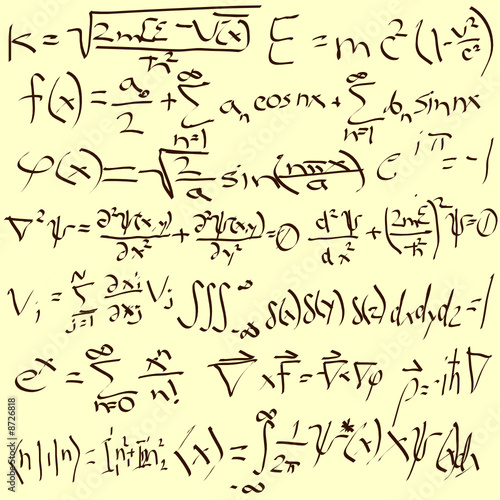 k = √(2m[E − V(x)] / ħ²) E = mc²(1 − v²/c²)
f(x) = a₀/2 + ∑_{n=1}^{∞} aₙ cos nx + ∑_{n=1}^{∞} bₙ sin nx
φ(x) = √(2/a) sin(nπx/a) e^{iπ} = −1
∇²ψ = ∂²ψ(x,y)/∂x² + ∂²ψ(x,y)/∂y² = 0 d²ψ/dx² + (2mE/ħ)²ψ = 0
V_i = ∑_{j=1}^{N} ∂x_i/∂x_j V_j ∭_{-∞}^{∞} δ(x)δ(y)δ(z) dxdydz = 1
eˣ = ∑_{n=0}^{∞} xⁿ/n! ∇ × F = ∇ × ∇φ p = −iħ∇
⟨n|1|n⟩ = ⟨x⟩ = ∫_{-∞}^{∞} 1/2π ψ*(x) x ψ(x)dx
Adobe Stock | #8726818